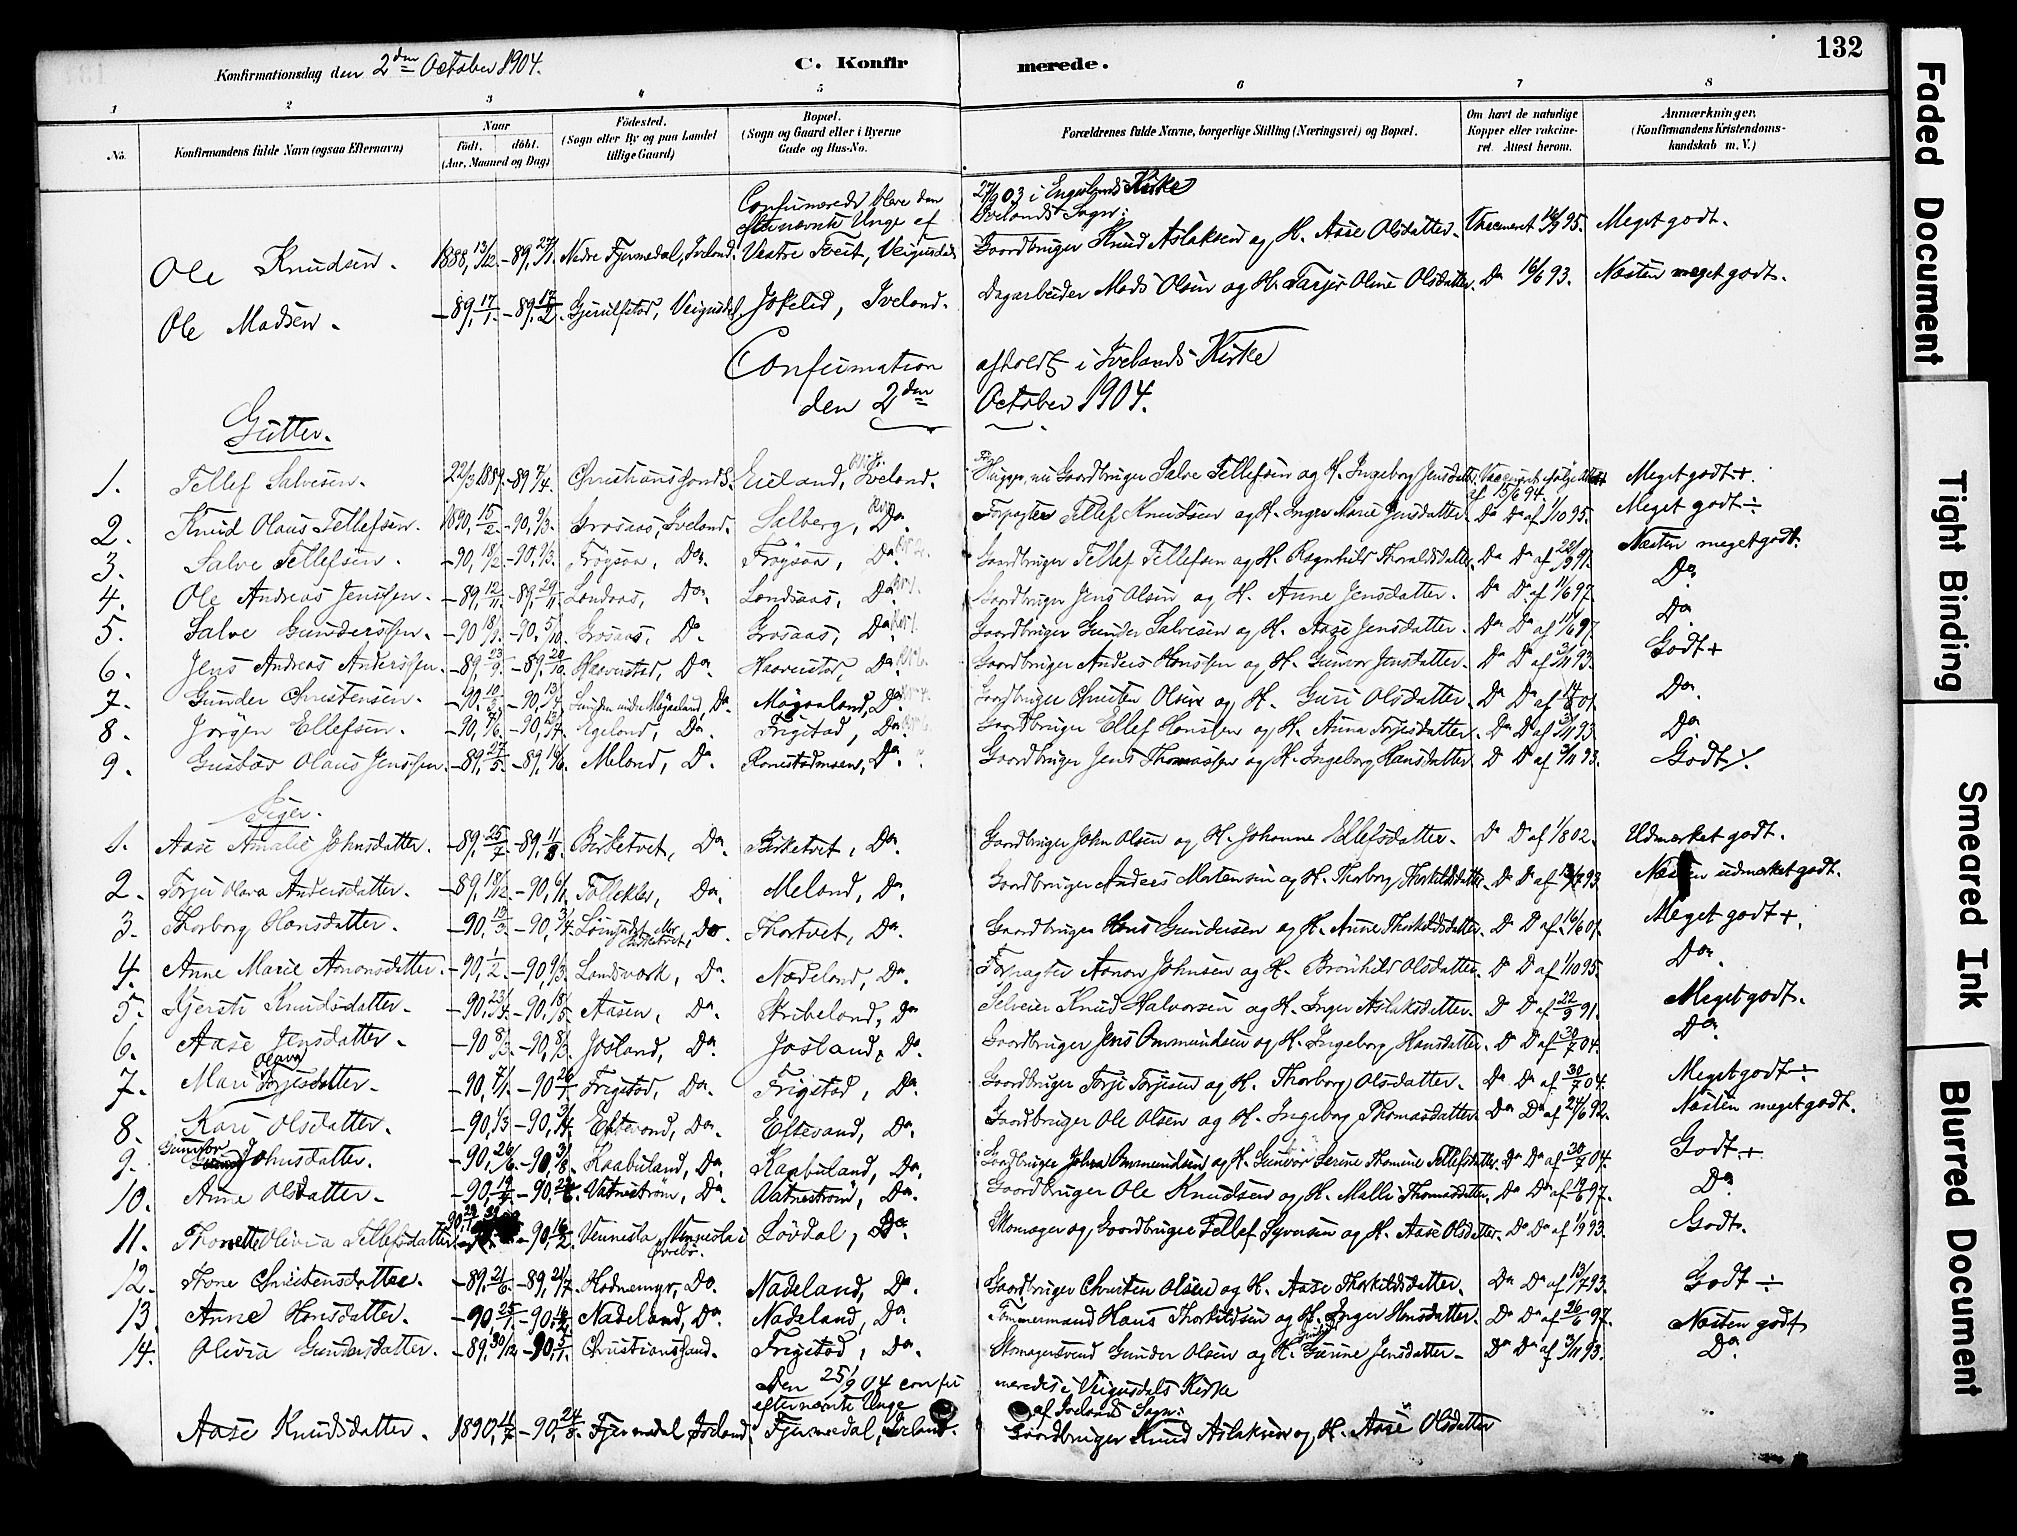 Konfirmationsdag den 2den October 1904. C. Konfirmerede. 132
1 2 3 4 5 6 7 8
No. Konfirmandens fulde Navn (ogsaa Efternavn) Naar født. døbt. (Aar, Maaned og Dag) Fødested. (Sogn eller By og paa Landet tillige Gaard) Bopæl. (Sogn og Gaard eller i Byerne Gade og Hus-No. Forældrenes fulde Navne, borgerlige Stilling (Næringsvei) og Bopæl. Om havt de naturlige Kopper eller vaccineret. Attest herom. Anmærkninger. (Konfirmandens Kristendomskundskab m. V.)
Confirmerede bleve den 27/9 03 i Engeslands Kirke
efternævnte Unge af Ivelands Sogn:
Ole Knudsen. 1888, 13/12. -89, Nedre Fjermedal, Iveland. Vestre Tveit, Veigusdal Gaardbruger Knud Aslaksen og H. Aase Olsdatter. Vaccineret 95. Meget godt.
Ole Madsen. -89, 17/1. -89, 17/2. Gjerulfstad, Veigusdal Jokeled, Iveland. Dagarbeider Mads Olsen og H. Tarjer Oline Olsdatter. Do 16/6 93. Næsten meget godt.
Confirmation afholdt i Ivelands Kirke
den 2den October 1904.
Gutter.
1. Tellef Salvesen. 22/3 1889. -89 7/4. Christianssand. Eieland, Iveland. nu Gaardbruger Salve Tellefsen og H. Ingeborg Jensdatter. Vaccineret ifølge Attest af 15/6 94. Meget godt +.
2. Knud Olaus Tellefsen. 1890, 15/2. -90, 9/3. Grosaas, Iveland. Salberg, Do. Forpagter Tellef Knudsen og H. Inger Marie Jensdatter. Do Do af 1/10 95. Meget godt ÷
3. Salve Tellefsen. -90, 18/2. -90, 9/3. Frøysaa, Do. Frøysaa, Do. Gaardbruger Tellef Tellefsen og H. Ragnhild Thoraldsdatter. Do Do af 22/9 91. Næsten meget godt.
4. Ole Andreas Jenssen. -89, 12/11. -89, 29/11. Landaas, Do. Landaas, Do. Gaardbruger Jens Olsen og H. Anne Jensdatter. Do Do af 11/6 97. Do.
5. Salve Gunderssen. -90 18/9. -90, 5/10. Grosaas, Do. Grosaas, Do. Gaardbruger Gunder Salvesen og H. Aase Jensdatter. Do Do af 11/6 97. Do.
6. Jens Andreas Anderssen. -89, 23/9. -89, 20/10. Haavestad, Do. Haavestad, Do. Gaardbruger Anders Hanssen og H. Gunvor Jensdatter. Do Do af 3/11 93. Godt +
7. Gunder Christensen. -90, -90, under Mögaaland, Do. Mögaaland, Do. Gaardbruger Christen Olsen og H. Guri Olsdatter. Do Do af 01. Do.
8. Jörgen Ellefsen. -90, -90, Ageland, Do. Frigstad, Do. Gaardbruger Ellef Hanssen og H. Anna Torjesdatter. Do Do af 3/11 93. Do.
9. Gustav Olaus Jenssen. -89, 27/5. -89, 16/6. Meland, Do. Do. Gaardbruger Jens Thomassen og H. Ingeborg Hansdatter. Do Do af 3/11 93. Godt
Piger.
1. Aase Amalie Johnsdatter. -89, 25/7. -89, 11/8. Birketvet, Do. Birketvet, Do. Gaardbruger John Olsen og H. Johanne Ellefsdatter. Do Do af 1/8 02. Udmerket godt.
2. Torjer Olava Andersdatter. -89, 18/12. -90, 6/1. Do. Meland, Do. Gaardbruger Anders Mortensen og H. Thorborg Thorkildsdatter. Do Do af 93. Næsten udmerket godt.
3. Thorborg Hansdatter. -90, 19/3. -90, 3/4. Do. Thortvet, Do. Gaardbruger Hans Gundersen og H. Anne Thorkildsdatter. Do Do af 16/6 01. Meget godt +.
4. Anne Marie Aanonsdatter. -90, 1/2. -90, 9/3. Landsverk, Do. Nadeland, Do. Forpagter Aanon Johnsen og H. Brønhild Olsdatter. Do Do af 1/10 95. Do.
5. Kjersti Knudsdatter. -90, -90, 18/5. Aasen, Do. Skribeland, Do Selveier Knud Halvorsen og H. Inger Aslaksdatter. Do Do af 22/9 91. Meget godt.
6. Aase Jensdatter. -90 8/3. -90, Josland, Do. Josland, Do. Gaardbruger Jens Ommundsen og H. Ingeborg Hansdatter. Do Do af 30/7 04. Do.
7. Mari Olava Torjesdatter. -90, 7/1. -90 26/1. Frigstad, Do. Frigstad, Do. Gaardbruger Torje Torjesen og H. Thorborg Olsdatter. Do Do af 30/7 04. Meget godt ÷
8. Kari Olsdatter. -90, 1/3. -90, 3/4. Eftevand, Do. Eftevand, Do. Gaardbruger Ole Olsen og H. Ingeborg Thomasdatter. Do Do af 24/6 92. Næsten meget godt.
9. Gunvor Johnsdatter. -90, 26/6. -90, 3/8. Kaabuland, Do. Kaabuland, Do. Gaardbruger John Ommundsen og H. Gunvor Serine Thomine Tellefsdatter. Do Do af 30/7 04. Godt +
10. Anne Olsdatter. -90, -90, Vatnestrøm, Do. Vatnestrøm, Do. Gaardbruger Ole Knudsen og H. Malli Thomasdatter. Do Do af 97. Do.
11. Thonette Olivia Tellefsdatter -90, 16/2. Vennesla, Vennesla i Øvrebø. Løvdal, Do. Skomager og Gaardbruger Tellef Syversen og H. Aase Olsdatter. Do Do af 1/9 93. Godt.
12. Tone Christensdatter. -89, 21/6. -89, 21/7. Hodnemyr, Do. Nadeland, Do. Gaardbruger Christen Olsen og H. Aase Thorkildsdatter. Do Do af 13/7 93. Godt ÷
13. Anne Hansdatter. -90, 25/1. -90, 16/2. Nadeland, Do. Nadeland, Do. Tømmermand Hans Thorkildsen og H. Inger Hansdatter. Do Do af 26/6 97. Næsten godt
14. Olivia Gundersdatter. -89, 30/12. -90, Christianssand. Frigstad, Do. Skomagersvend Gunder Olsen og H. Gurine Jensdatter. Do Do af 3/11 93. Do.
Den 25/9 04 confirmeredes i Veigusdals Kirke
efternævnte Unge af Ivelands Sogn:
Aase Knudsdatter. 1890, 11/7. -90, 24/8. Fjermedal, Iveland. Fjermedal, Iveland. Gaardbruger Knud Aslaksen og H. Aase Olsdatter
Faded Document
Tight Binding
Smeared Ink
Blurred Document